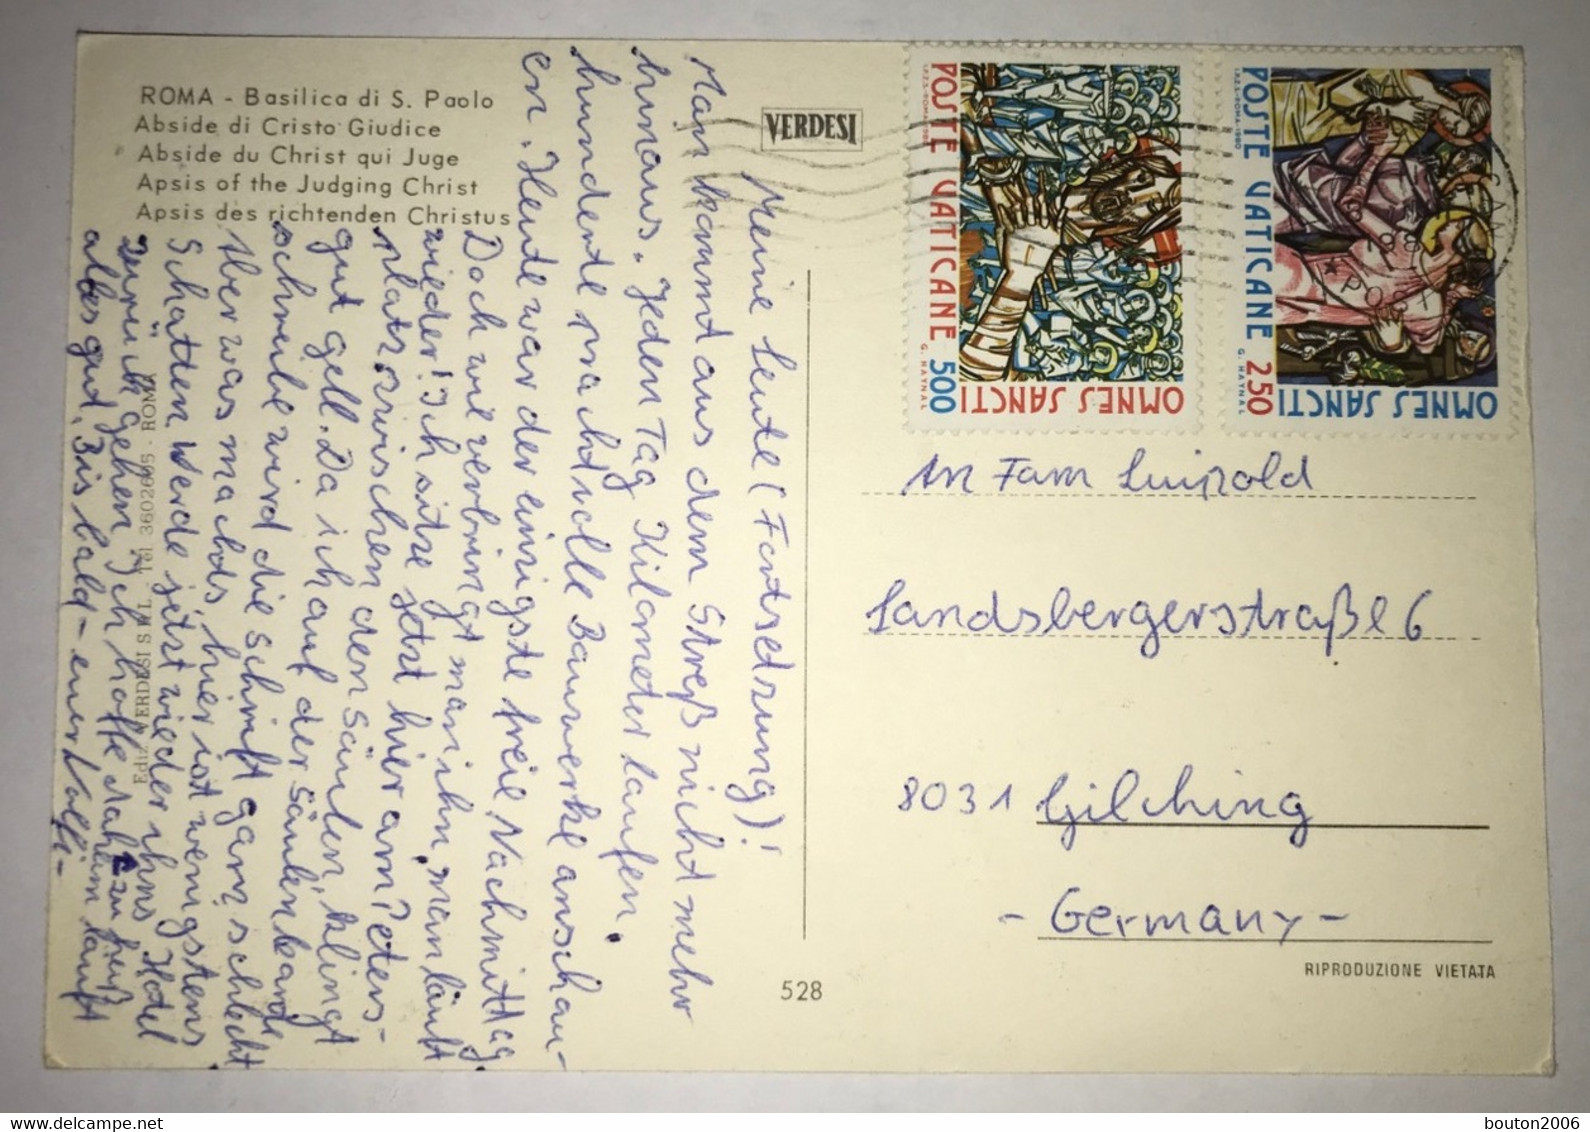 ROMA - Basilica di S. Paolo
Abside di Cristo Giudice
Abside du Christ qui Juge
Apsis of the Judging Christ
Apsis des richtenden Christus
VERDESI
Meine Leute (Fortsedzung)!
Man kommt aus dem Streß nicht mehr
hinaus. Jeden Tag Kilometer laufen.
hunderte prachtvolle Bauwerke anschau-
en. Heute war der einzigste freie Nachmittag.
Doch wie verbringt man ihn, man läuft
wieder! Ich sitze jetzt hier am Peters-
platz zwischen den Säulen, klingt
gut gell. Da ich auf der Säulenkande
schreibe wird die schrift ganz schlecht
Aber was machds, hier ist wenigstens
Schatten. Werde jetzt wieder ihns Hotel
zurück gehen. Ich hoffe daheim läuft
alles gut. Bis bald - euer Wolfi -
zu Fuß
Ediz. VERDESI S.R.L. Tel. 3602665 - ROMA
528
POSTE VATICANE 500
OMNES SANCTI
G. HAJNAL
I.P.Z.S.-ROMA-1980
POSTE VATICANE 250
OMNES SANCTI
G. HAJNAL
I.P.Z.S.-ROMA-1980
POST
An Fam Luipold
Landsbergerstraße 6
8031 Gilching
- Germany -
RIPRODUZIONE VIETATA
bouton2006